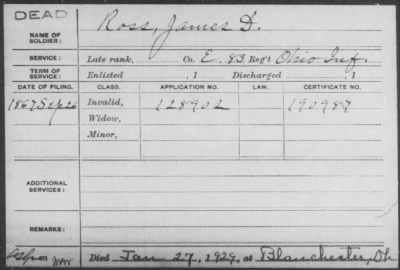 DEAD
NAME OF SOLDIER: Ross, James D.
SERVICE: Late rank, Co. E. 83 Reg't Ohio Inf.
TERM OF SERVICE: Enlisted , 1 Discharged , 1
DATE OF FILING. CLASS. APPLICATION NO. LAW. CERTIFICATE NO.
1867 Sep 26 Invalid, 128902 190987
Widow,
Minor,
ADDITIONAL SERVICES:
REMARKS:
Died Jan 27, 1929, at Blanchester, Oh